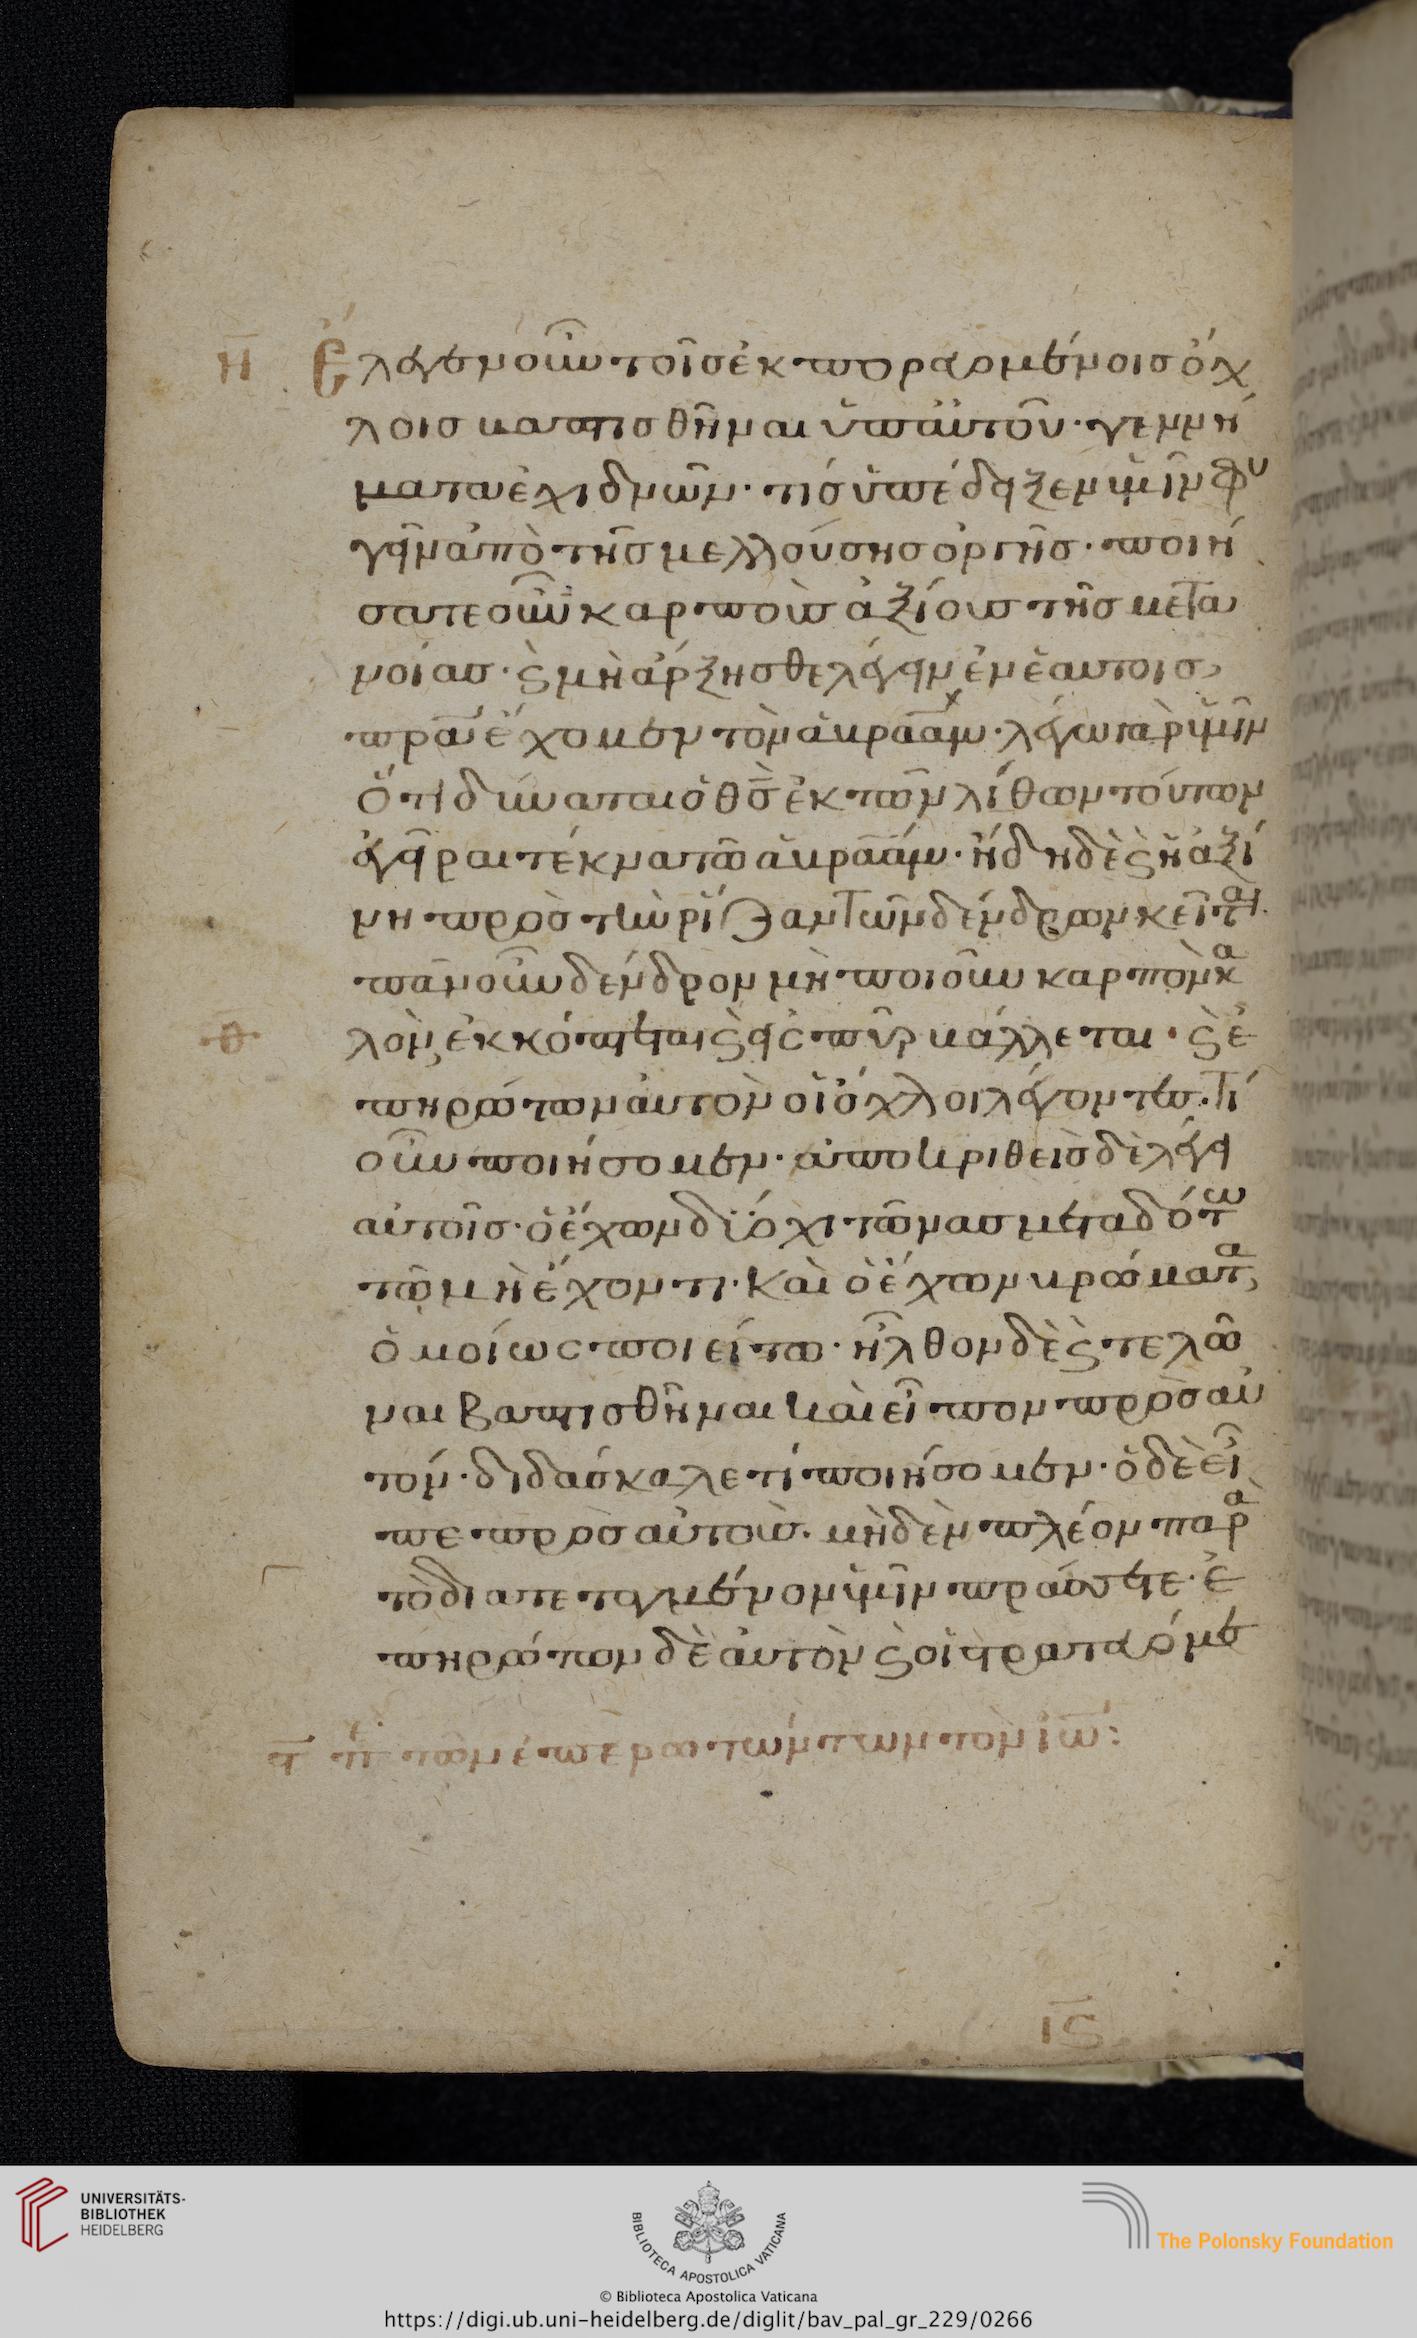 η Ἔλεγεν οὖν τοῖς ἐκπορευομένοις ὄχ
λοις βαπτισθῆναι ὑπ' αὐτοῦ· γεννή
ματα ἐχιδνῶν· τίς ὑπέδειξεν ὑμῖν φυ
γεῖν ἀπὸ τῆς μελλούσης ὀργῆς· ποιή
σατε οὖν καρποὺς ἀξίους τῆς μετα
νοίας· ϛ μὴ ἄρξησθε λέγειν ἐν ἑαυτοῖς
πρα ἔχομεν τὸν ἀβραάμ· λέγω γὰρ ὑμῖν
ὅτι δύναται ὁ θς ἐκ τῶν λίθων τούτων
ἐγεῖραι τέκνα τῶ ἀβραάμ· ἤδη δὲ ϛ ἡ ἀξί
νη πρὸς τὴν ρίζαν τῶν δένδρων κεῖται·
πᾶν οὖν δένδρον μὴ ποιοῦν καρπὸν κα
θ λὸν ἐκκόπτεται ϛ εἰς πῦρ βάλλεται· ϛ ἐ
πηρώτων αὐτὸν οἱ ὄχλοι λέγοντες· τί
οὖν ποιήσομεν· ἀποκριθεὶς δὲ λέγει
αὐτοῖς· ὁ ἔχων δύο χιτῶνας μεταδότω
τῶ μὴ ἔχοντι· καὶ ὁ ἔχων βρώματα,
ὁμοίως ποιείτω· ἦλθον δὲ ϛ τελῶ
ναι βαπτισθῆναι καὶ εἶπον πρὸς αὐ
τόν· διδάσκαλε τί ποιήσομεν· ὁ δὲ εἶ
πε πρὸς αὐτούς· μὴδὲν πλέον παρὰ
τὸ διατεταγμένον ὑμῖν πράσσετε· ἐ
πηρώτων δὲ αὐτὸν ϛ οἱ στρατευόμε
π τῶν ἐπερωτώντων τὸν ἰω:
ιϛ
UNIVERSITÄTS-
BIBLIOTHEK
HEIDELBERG
BIBLIOTECA APOSTOLICA VATICANA
The Polonsky Foundation
© Biblioteca Apostolica Vaticana
https://digi.ub.uni-heidelberg.de/diglit/bav_pal_gr_229/0266